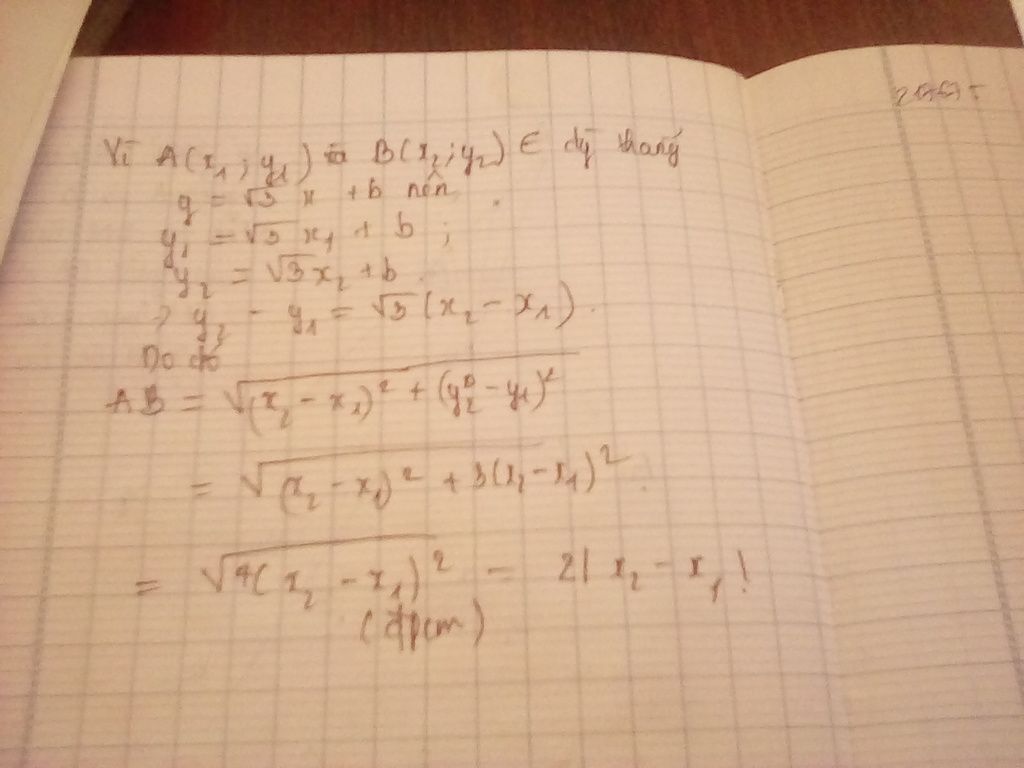 Vì A(x₁; y₁) và B(x₂; y₂) ∈ đg thẳng
y = √3 x + b nên
y₁ = √3 x₁ + b ;
y₂ = √3 x₂ + b .
⇒ y₂ - y₁ = √3 (x₂ - x₁) .
Do đó
AB = √(x₂ - x₁)² + (y₂ - y₁)²
= √(x₂ - x₁)² + 3(x₂ - x₁)²
= √4(x₂ - x₁)² = 2|x₂ - x₁|
(đpcm)